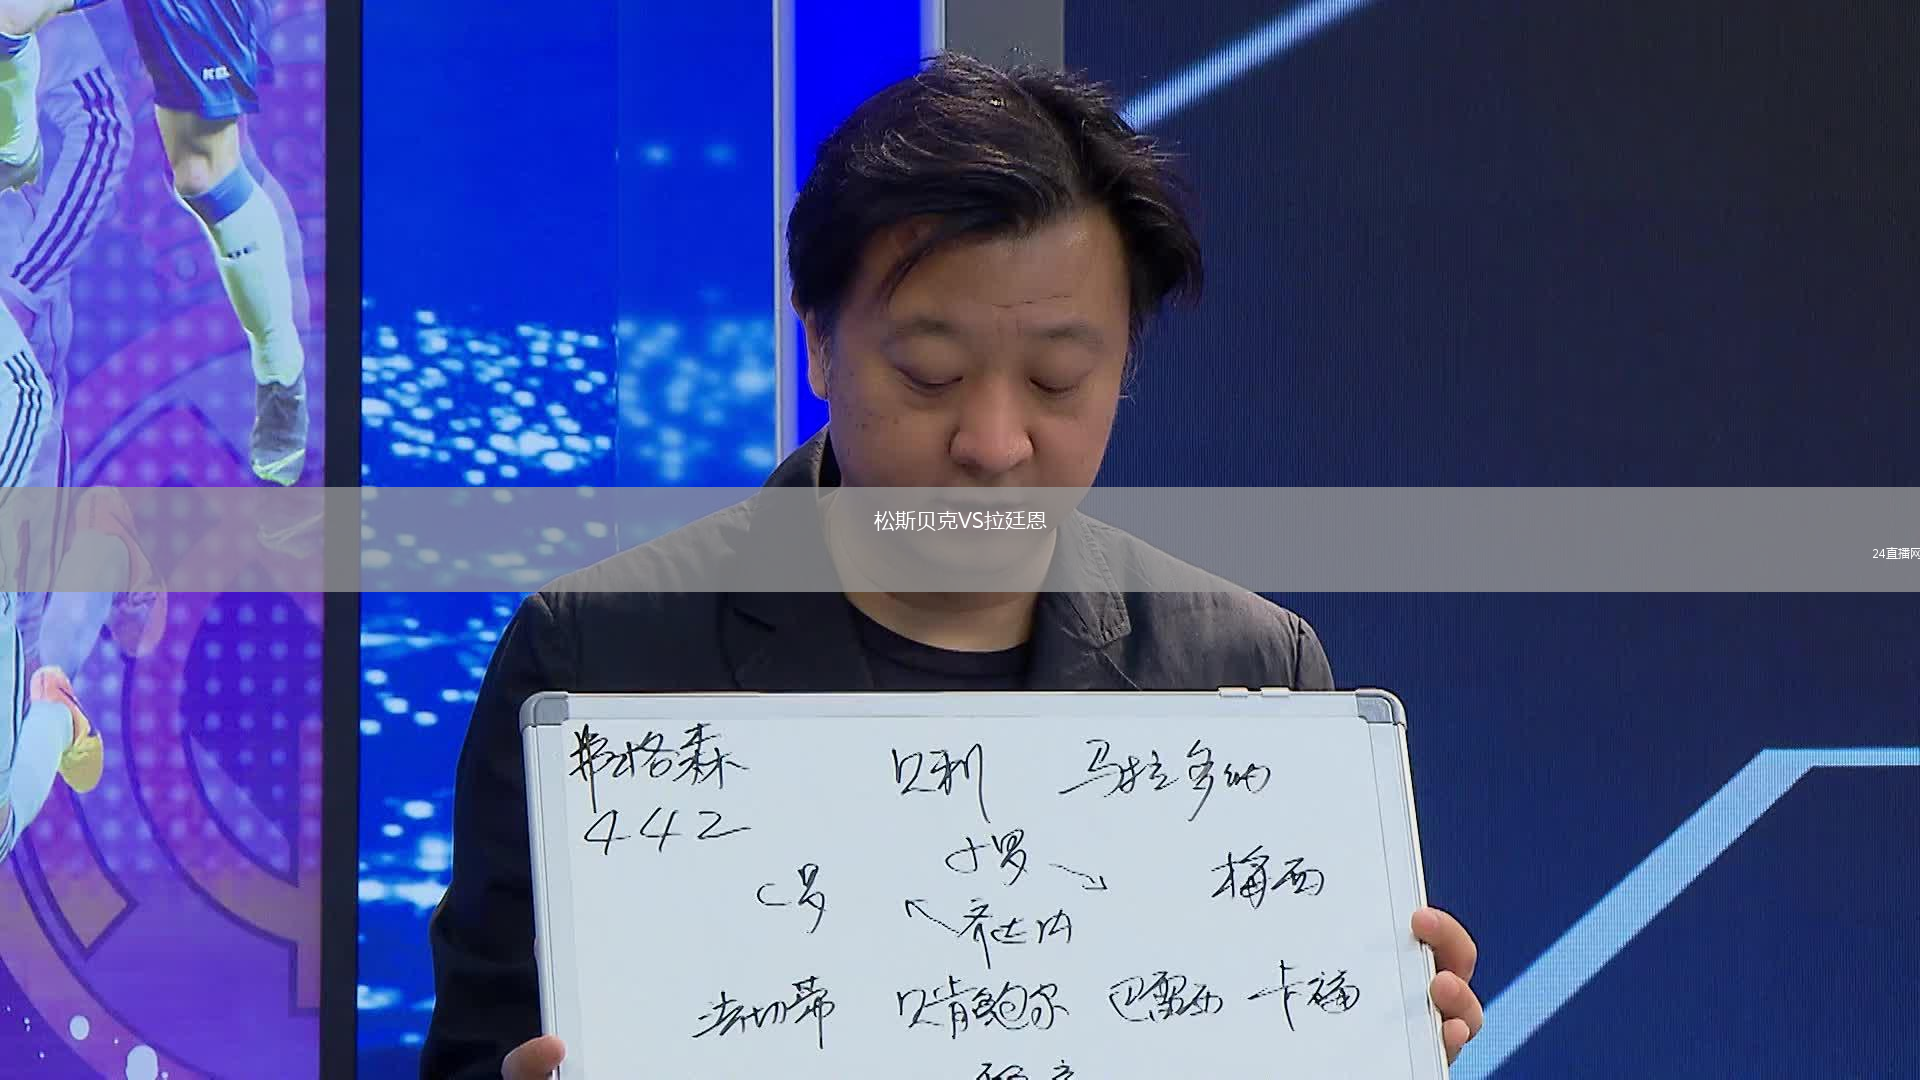 松斯贝克VS拉廷恩
24直播网
弗格森 贝利 马拉多纳
442
小罗
C罗 梅西
齐达内
法切蒂 贝肯鲍尔 巴雷西 卡福